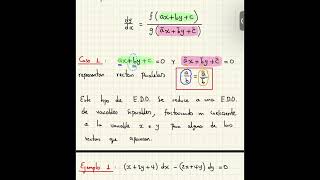 dy/dx = f(ax+by+c) / g(āx+b̄y+c̄)
Caso 1 : ax+by+c =0 y āx+b̄y+c̄ =0
representan rectas paralelas a/b = ā/b̄
Este tipo de E.D.O. se reduce a una E.D.O
de variables separables, factorizando un coeficiente
a la variable x e y para alguna de las
rectas que aparecen.
Ejemplo 1 : (x+2y+4) dx - (2x+4y) dy =0